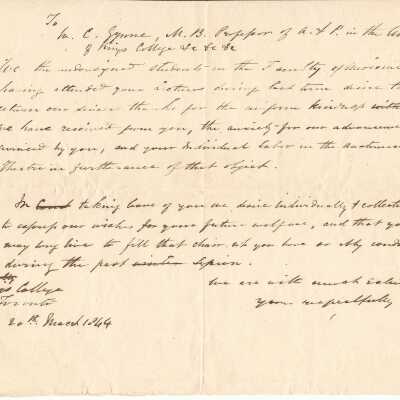 To
W. C. Gwynne, M.B. Professor of A. & P. in the
of Kings College &c &c &c
We the undersigned students in the Faculty of Medicine
having attended your lectures during last term desire to
return our sincere for the uniform kindness
we have received from you, the anxiety for our advancement
evinced by you, and your individual labor in the Anatomical
Theatre in furtherance of that object.
In taking leave of you we desire individually & collect
to express our wishes for your future welfare, and that you
may long live to fill that chair wh you have so ably cond
during the past winter Session.
We are with much
gs College
Your respectfully
Toronto
20th March 1844